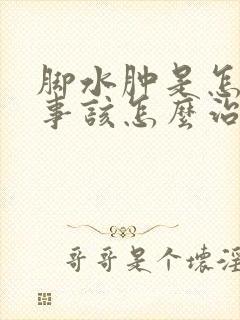 脚水肿是怎
事该怎麼治
哥哥是个壊淫